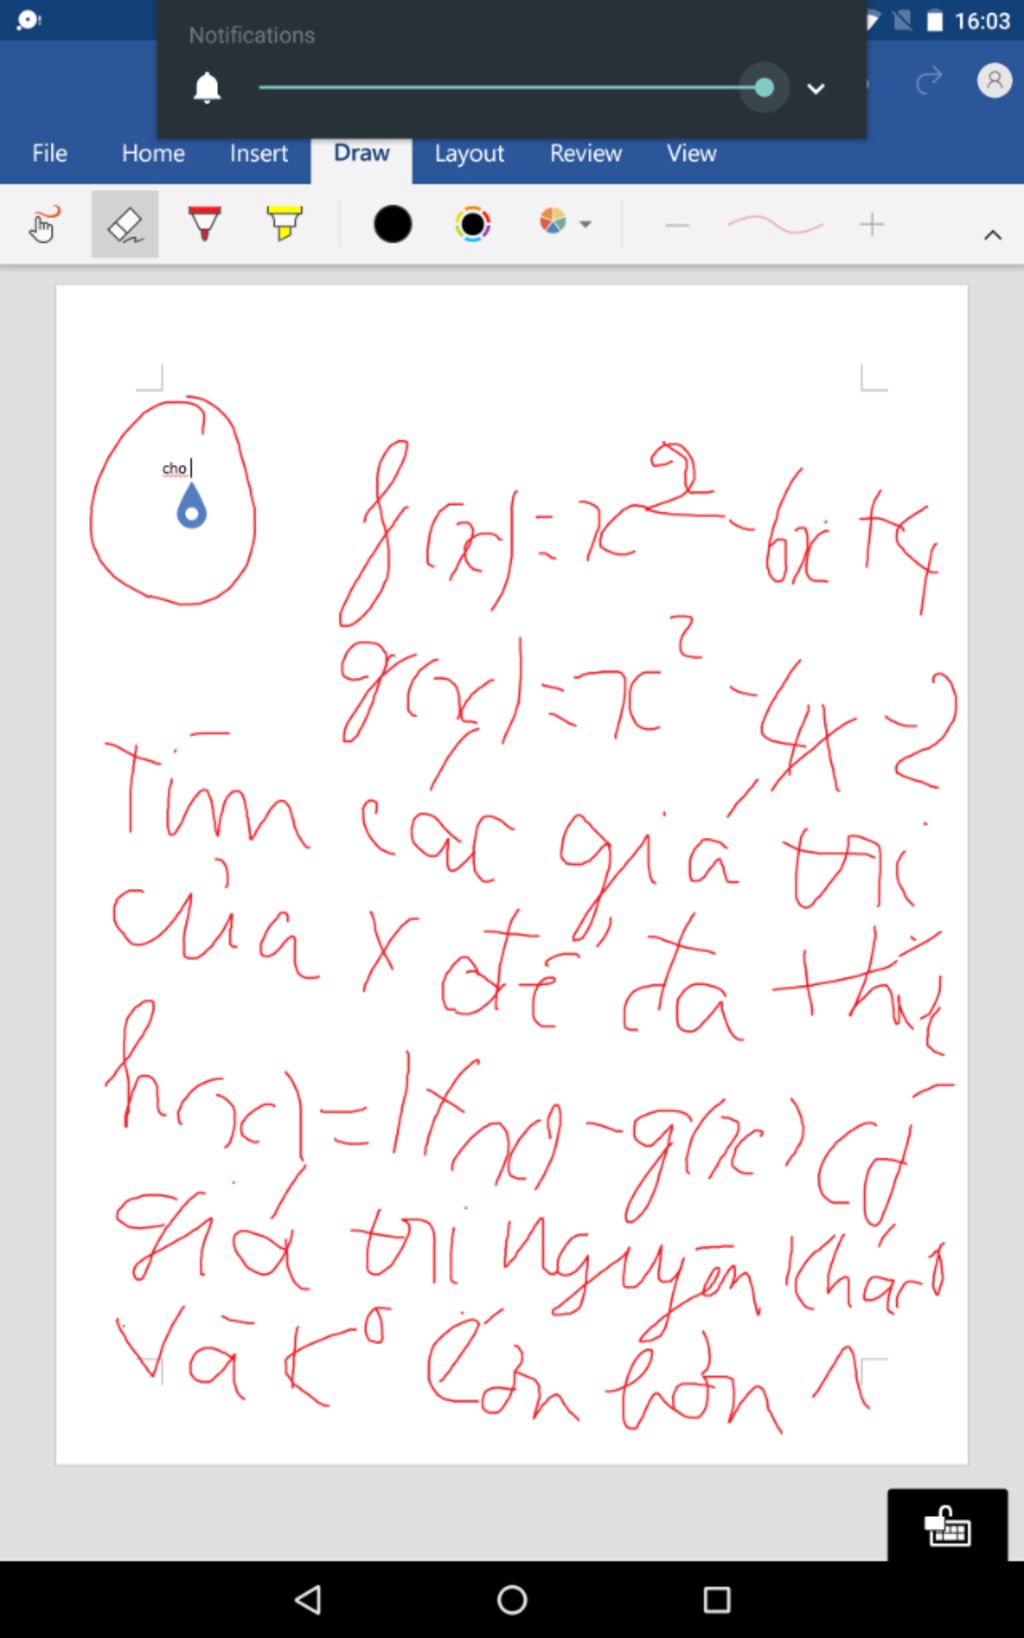 16:03
Notifications
File Home Insert Draw Layout Review View
cho
f(x)=x²-6x+4
g(x)=x²-4x-2
Tìm các giá trị
của x để đa thức
h(x)=f(x)-g(x) có
giá trị nguyên khác 0
và k° lớn hơn 1